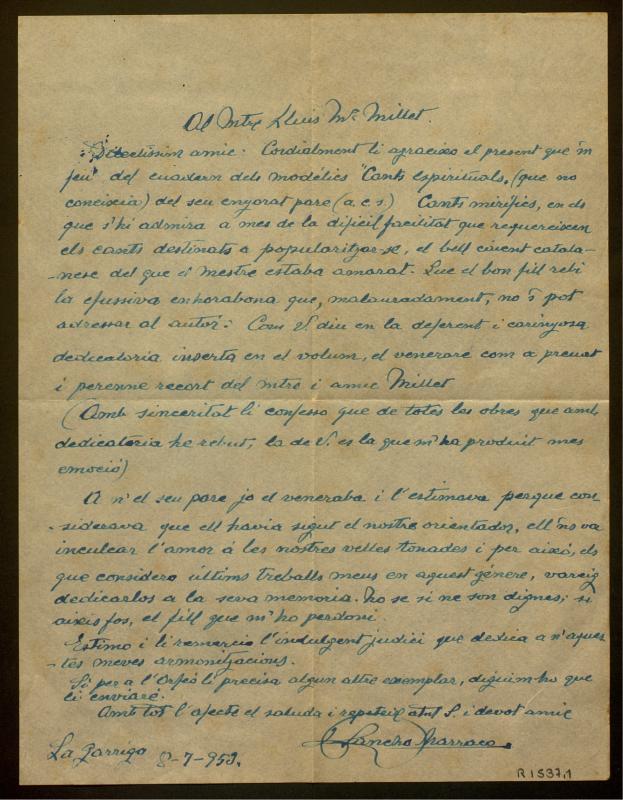 Al Mtre Lluis Mª Millet.
Dilectíssim amic: Cordialment li agraeixo el present que 'm
feu del cuadern dels modélics "Cants espirituals, (que no
coneixia) del seu enyorat pare (a.c.s.) Cants mirífics, en els
que s'hi admira a mes de la dificil facilitat que requereixen
els cants destinats a popularitzar-se, el bell cuent catala-
-nesc del que el mestre estaba amarat. Que el bon fill rebi
la efussiva enhorabona que, malauradament, no 's pot
adressar al autor. Com V. diu en la deferent i carinyosa
dedicatoria inserta en el volum, el veneraré com a preuat
i perenne recort del mtre i amic Millet
(Amb sinceritat li confesso que de totes les obres que amb
dedicatoria he rebut, la de V. es la que m'ha produit mes
emoció)
A n'el seu pare jo el veneraba i l'estimava perque con
-siderava que ell havia sigut el nostre orientador, ell 'ns va
inculcar l'amor á les nostres velles tonades i per aixó, els
que considero últims treballs meus en aquest génere, vareig
dedicarlos a la seva memoria. No se si ne son dignes; si
aixís fos, el fill que m'ho perdoni.
Estimo i li remercio l'indulgent judici que dedica a n'aques
-tes meves armonitzacions.
Si per a l'Orfeó li precisa algun altre exemplar, diguim-ho que
li enviaré.
Amb tot l'afecte el saluda i repeteix atnt S. i devot amic
Sancho Marraco
La Garriga 8-7-953.
R 1537,1